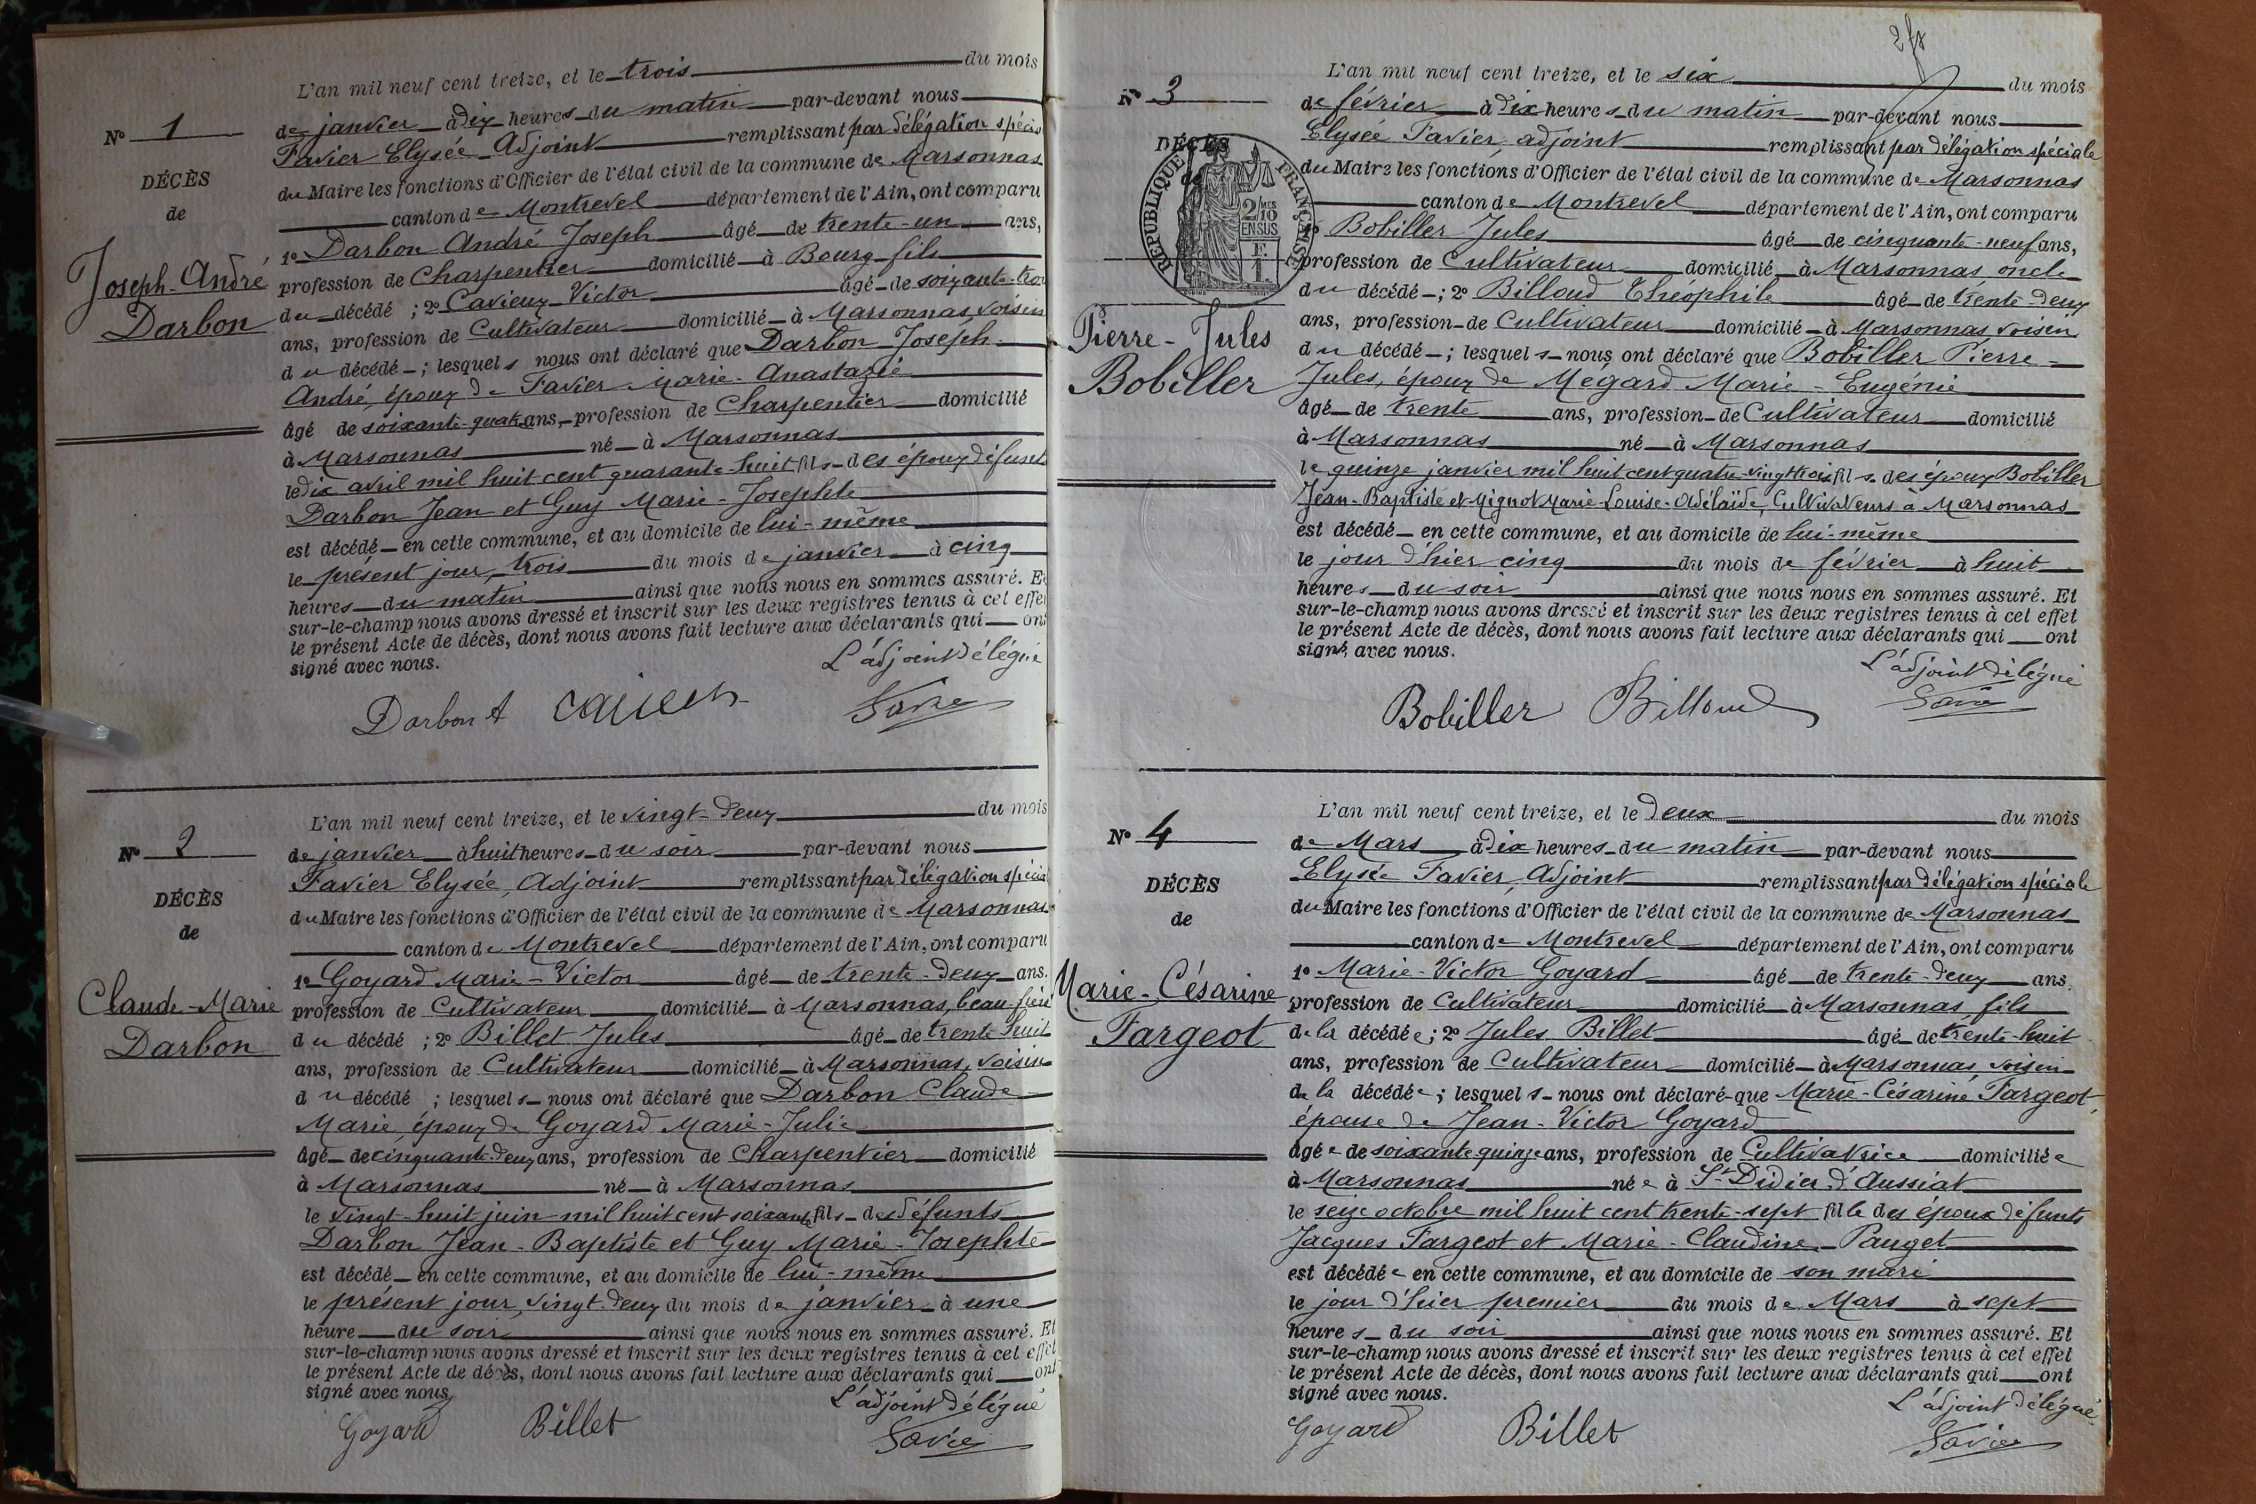 L'an mil neuf cent treize, et le trois du mois
N° 1
de janvier à dix heures du matin par-devant nous
Favier Elysée Adjoint remplissant par délégation spécia
DÉCÈS
du Maire les fonctions d'Officier de l'état civil de la commune de Marsonnas
de
canton de Montrevel département de l'Ain, ont comparu
1° Darbon André Joseph âgé de trente-un ans,
Joseph-André
Darbon
profession de Charpentier domicilié à Bourg fils
du décédé ; 2° Cavieux Victor âgé de soixante-trois
ans, profession de Cultivateur domicilié à Marsonnas, voisin
du décédé ; lesquels nous ont déclaré que Darbon Joseph-
André, époux de Favier Marie-Anastazie
âgé de soixante-quatre ans, profession de Charpentier domicilié
à Marsonnas né à Marsonnas
le dix avril mil huit cent quarante-huit fils des époux défunts
Darbon Jean et Guy Marie-Josephte
est décédé en cette commune, et au domicile de lui-même
le présent jour, trois du mois de janvier à cinq
heures du matin ainsi que nous nous en sommes assuré. Et
sur-le-champ nous avons dressé et inscrit sur les deux registres tenus à cet effet
le présent Acte de décès, dont nous avons fait lecture aux déclarants qui ont
signé avec nous.
L'adjoint délégué
Darbon A
L'an mil neuf cent treize, et le vingt-deux du mois
N° 2
de janvier à huit heures du soir par-devant nous
Favier Elysée, Adjoint remplissant par délégation spécia
DÉCÈS
du Maire les fonctions d'Officier de l'état civil de la commune de Marsonnas
de
canton de Montrevel département de l'Ain, ont comparu
1° Goyard Marie-Victor âgé de trente-deux ans.
Claude-Marie
Darbon
profession de Cultivateur domicilié à Marsonnas, beau-frère
du décédé ; 2° Billet Jules âgé de trente huit
ans, profession de Cultivateur domicilié à Marsonnas, voisin
du décédé ; lesquels nous ont déclaré que Darbon Claude
Marie, époux de Goyard Marie-Julie
âgé de cinquante-deux ans, profession de Charpentier domicilié
à Marsonnas né à Marsonnas
le vingt-huit juin mil huit cent soixante fils des défunts
Darbon Jean-Baptiste et Guy Marie-Josephte
est décédé en cette commune, et au domicile de lui-même
le présent jour, vingt-deux du mois de janvier à une
heure du soir ainsi que nous nous en sommes assuré. Et
sur-le-champ nous avons dressé et inscrit sur les deux registres tenus à cet effet
le présent Acte de décès, dont nous avons fait lecture aux déclarants qui ont
signé avec nous
L'adjoint délégué
Goyard Billet Favier
L'an mil neuf cent treize, et le six du mois
N° 3
de février à dix heures du matin par-devant nous
Elysée Favier, adjoint remplissant par délégation spéciale
DÉCÈS
du Maire les fonctions d'Officier de l'état civil de la commune de Marsonnas
RÉPUBLIQUE FRANÇAISE
2/10 EN SUS
canton de Montrevel département de l'Ain, ont comparu
1° Bobiller Jules âgé de cinquante-neuf ans,
profession de Cultivateur domicilié à Marsonnas, oncle
du décédé ; 2° Billoud Théophile âgé de trente-deux
Pierre-Jules
Bobiller
ans, profession de Cultivateur domicilié à Marsonnas, voisin
du décédé ; lesquels nous ont déclaré que Bobiller Pierre-
Jules, époux de Mégard Marie-Eugénie
âgé de trente ans, profession de Cultivateur domicilié
à Marsonnas né à Marsonnas
le quinze janvier mil huit cent quatre-vingt trois fils des époux Bobiller
Jean-Baptiste et Mignot Marie-Louise-Adélaïde, Cultivateurs à Marsonnas
est décédé en cette commune, et au domicile de lui-même
le jour d'hier cinq du mois de février à huit
heures du soir ainsi que nous nous en sommes assuré. Et
sur-le-champ nous avons dressé et inscrit sur les deux registres tenus à cet effet
le présent Acte de décès, dont nous avons fait lecture aux déclarants qui ont
signé avec nous.
L'adjoint délégué
Bobiller Billoud Favier
L'an mil neuf cent treize, et le deux du mois
N° 4
de Mars à dix heures du matin par-devant nous
Elysée Favier, Adjoint remplissant par délégation spéciale
DÉCÈS
du Maire les fonctions d'Officier de l'état civil de la commune de Marsonnas
de
canton de Montrevel département de l'Ain, ont comparu
1° Marie-Victor Goyard âgé de trente-deux ans.
Marie-Césarine
Fargeot
profession de Cultivateur domicilié à Marsonnas, fils
de la décédée ; 2° Jules Billet âgé de trente-huit
ans, profession de Cultivateur domicilié à Marsonnas, voisin
de la décédée ; lesquels nous ont déclaré que Marie-Césarine Fargeot,
épouse de Jean-Victor Goyard
âgée de soixante quinze ans, profession de Cultivatrice domiciliée
à Marsonnas née à St Didier d'Aussiat
le seize octobre mil huit cent trente-sept fille des époux défunts
Jacques Fargeot et Marie-Claudine Pauget
est décédée en cette commune, et au domicile de son mari
le jour d'hier premier du mois de Mars à sept
heures du soir ainsi que nous nous en sommes assuré. Et
sur-le-champ nous avons dressé et inscrit sur les deux registres tenus à cet effet
le présent Acte de décès, dont nous avons fait lecture aux déclarants qui ont
signé avec nous.
L'adjoint délégué
Goyard Billet Favier